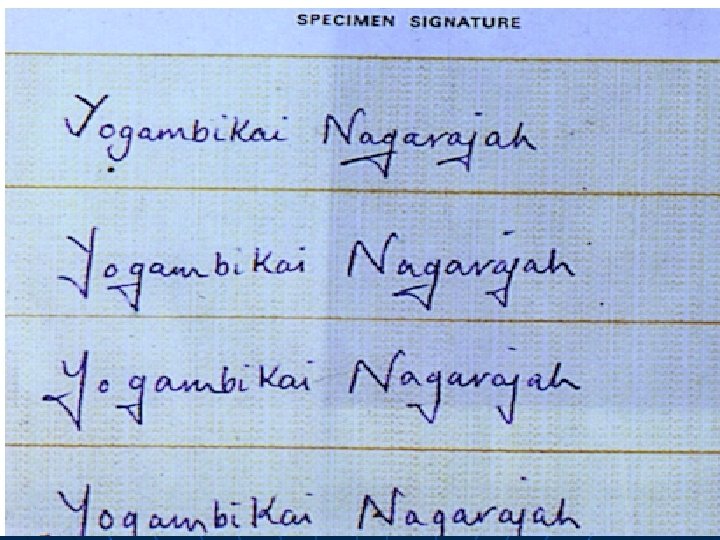 SPECIMEN SIGNATURE
Yogambikai Nagarajah
Yogambikai Nagarajah
Yogambikai Nagarajah
Yogambikai Nagarajah